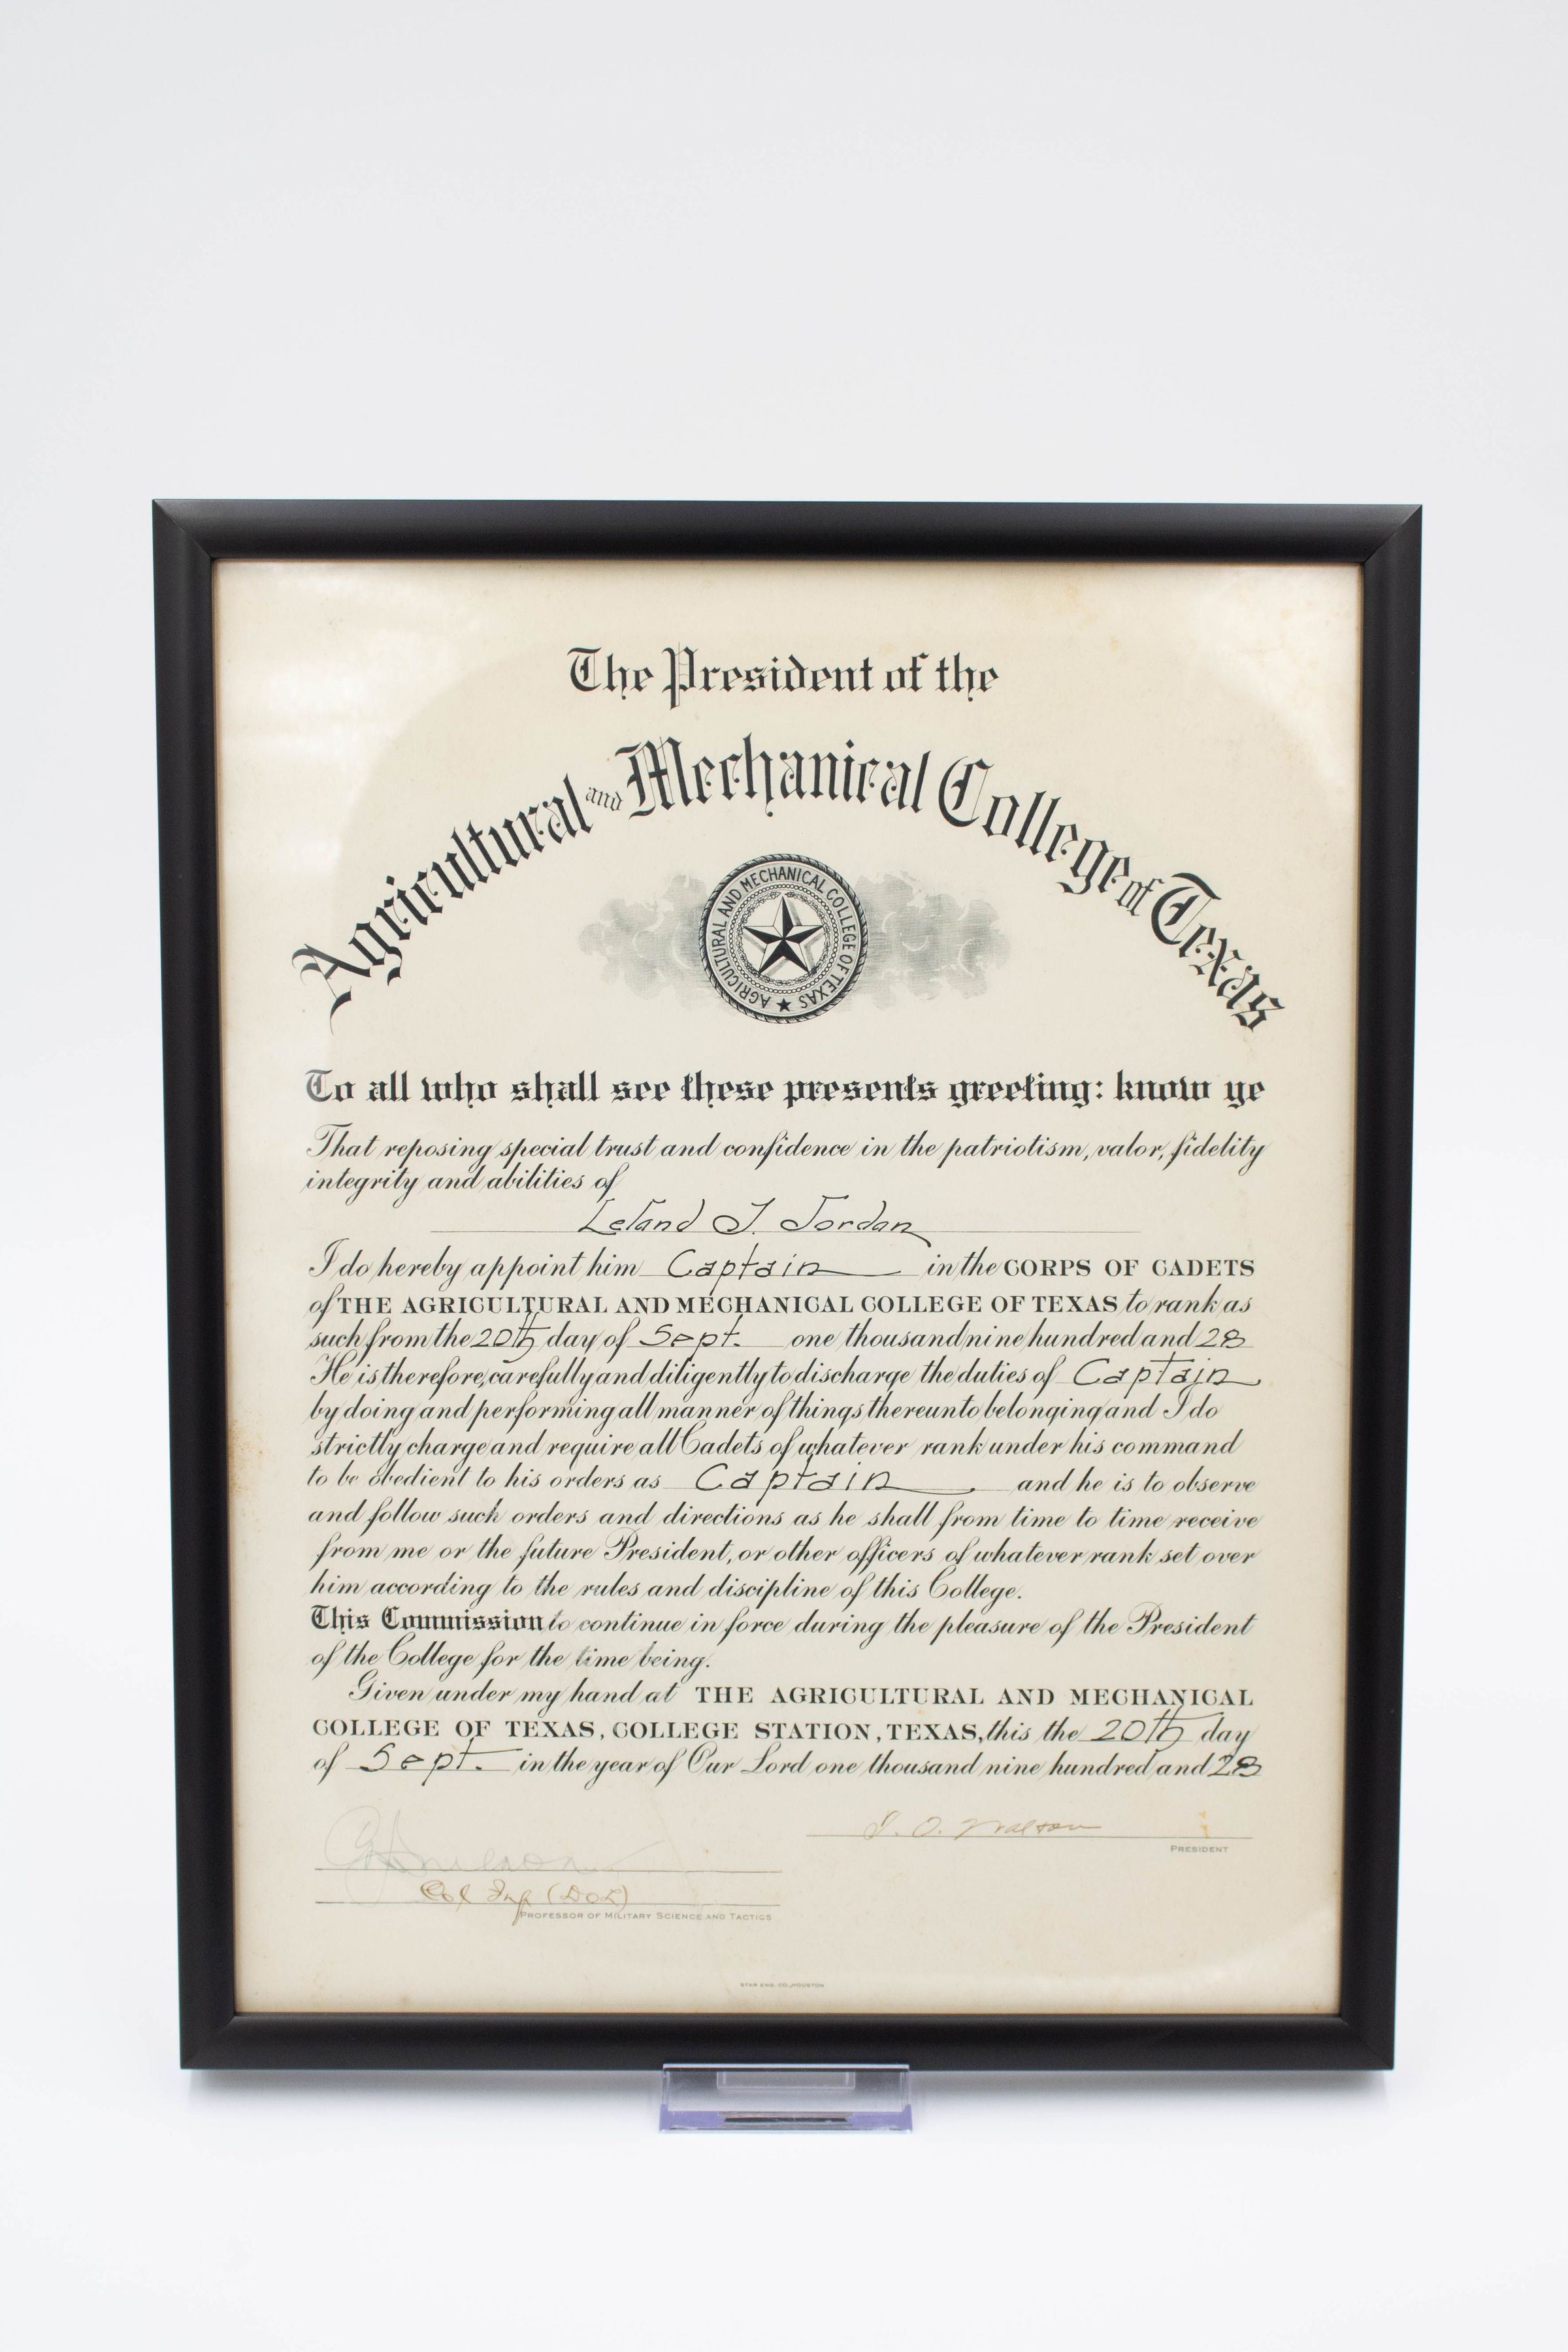 The President of the
Agricultural and Mechanical College of Texas
AGRICULTURAL AND MECHANICAL COLLEGE OF TEXAS
To all who shall see these presents greeting: know ye
That reposing special trust and confidence in the patriotism, valor, fidelity
integrity and abilities of
Leland J. Jordan
I do hereby appoint him Captain in the CORPS OF CADETS
of THE AGRICULTURAL AND MECHANICAL COLLEGE OF TEXAS to rank as
such from the 20th day of Sept. one thousand nine hundred and 28
He is therefore, carefully and diligently to discharge the duties of Captain
by doing and performing all manner of things thereunto belonging and I do
strictly charge and require all Cadets of whatever rank under his command
to be obedient to his orders as Captain and he is to observe
and follow such orders and directions as he shall from time to time receive
from me or the future President, or other officers of whatever rank set over
him according to the rules and discipline of this College.
This Commission to continue in force during the pleasure of the President
of the College for the time being.
Given under my hand at THE AGRICULTURAL AND MECHANICAL
COLLEGE OF TEXAS, COLLEGE STATION, TEXAS, this the 20th day
of Sept. in the year of Our Lord one thousand nine hundred and 28
T. O. Walton
PRESIDENT
Col Inf (DOL)
PROFESSOR OF MILITARY SCIENCE AND TACTICS
STAR ENG. CO., HOUSTON